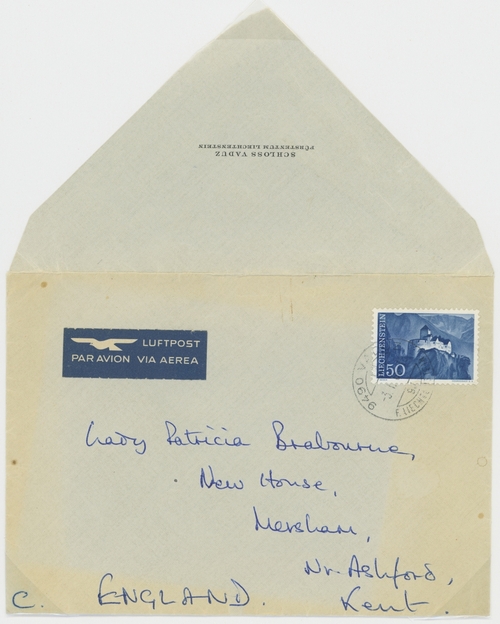 SCHLOSS VADUZ
FÜRSTENTUM LIECHTENSTEIN
LUFTPOST
PAR AVION VIA AEREA
LIECHTENSTEIN
50
9490
F. LIECHT
Lady Patricia Brabourne,
New House,
Mersham,
Nr. Ashford,
Kent.
C. ENGLAND.